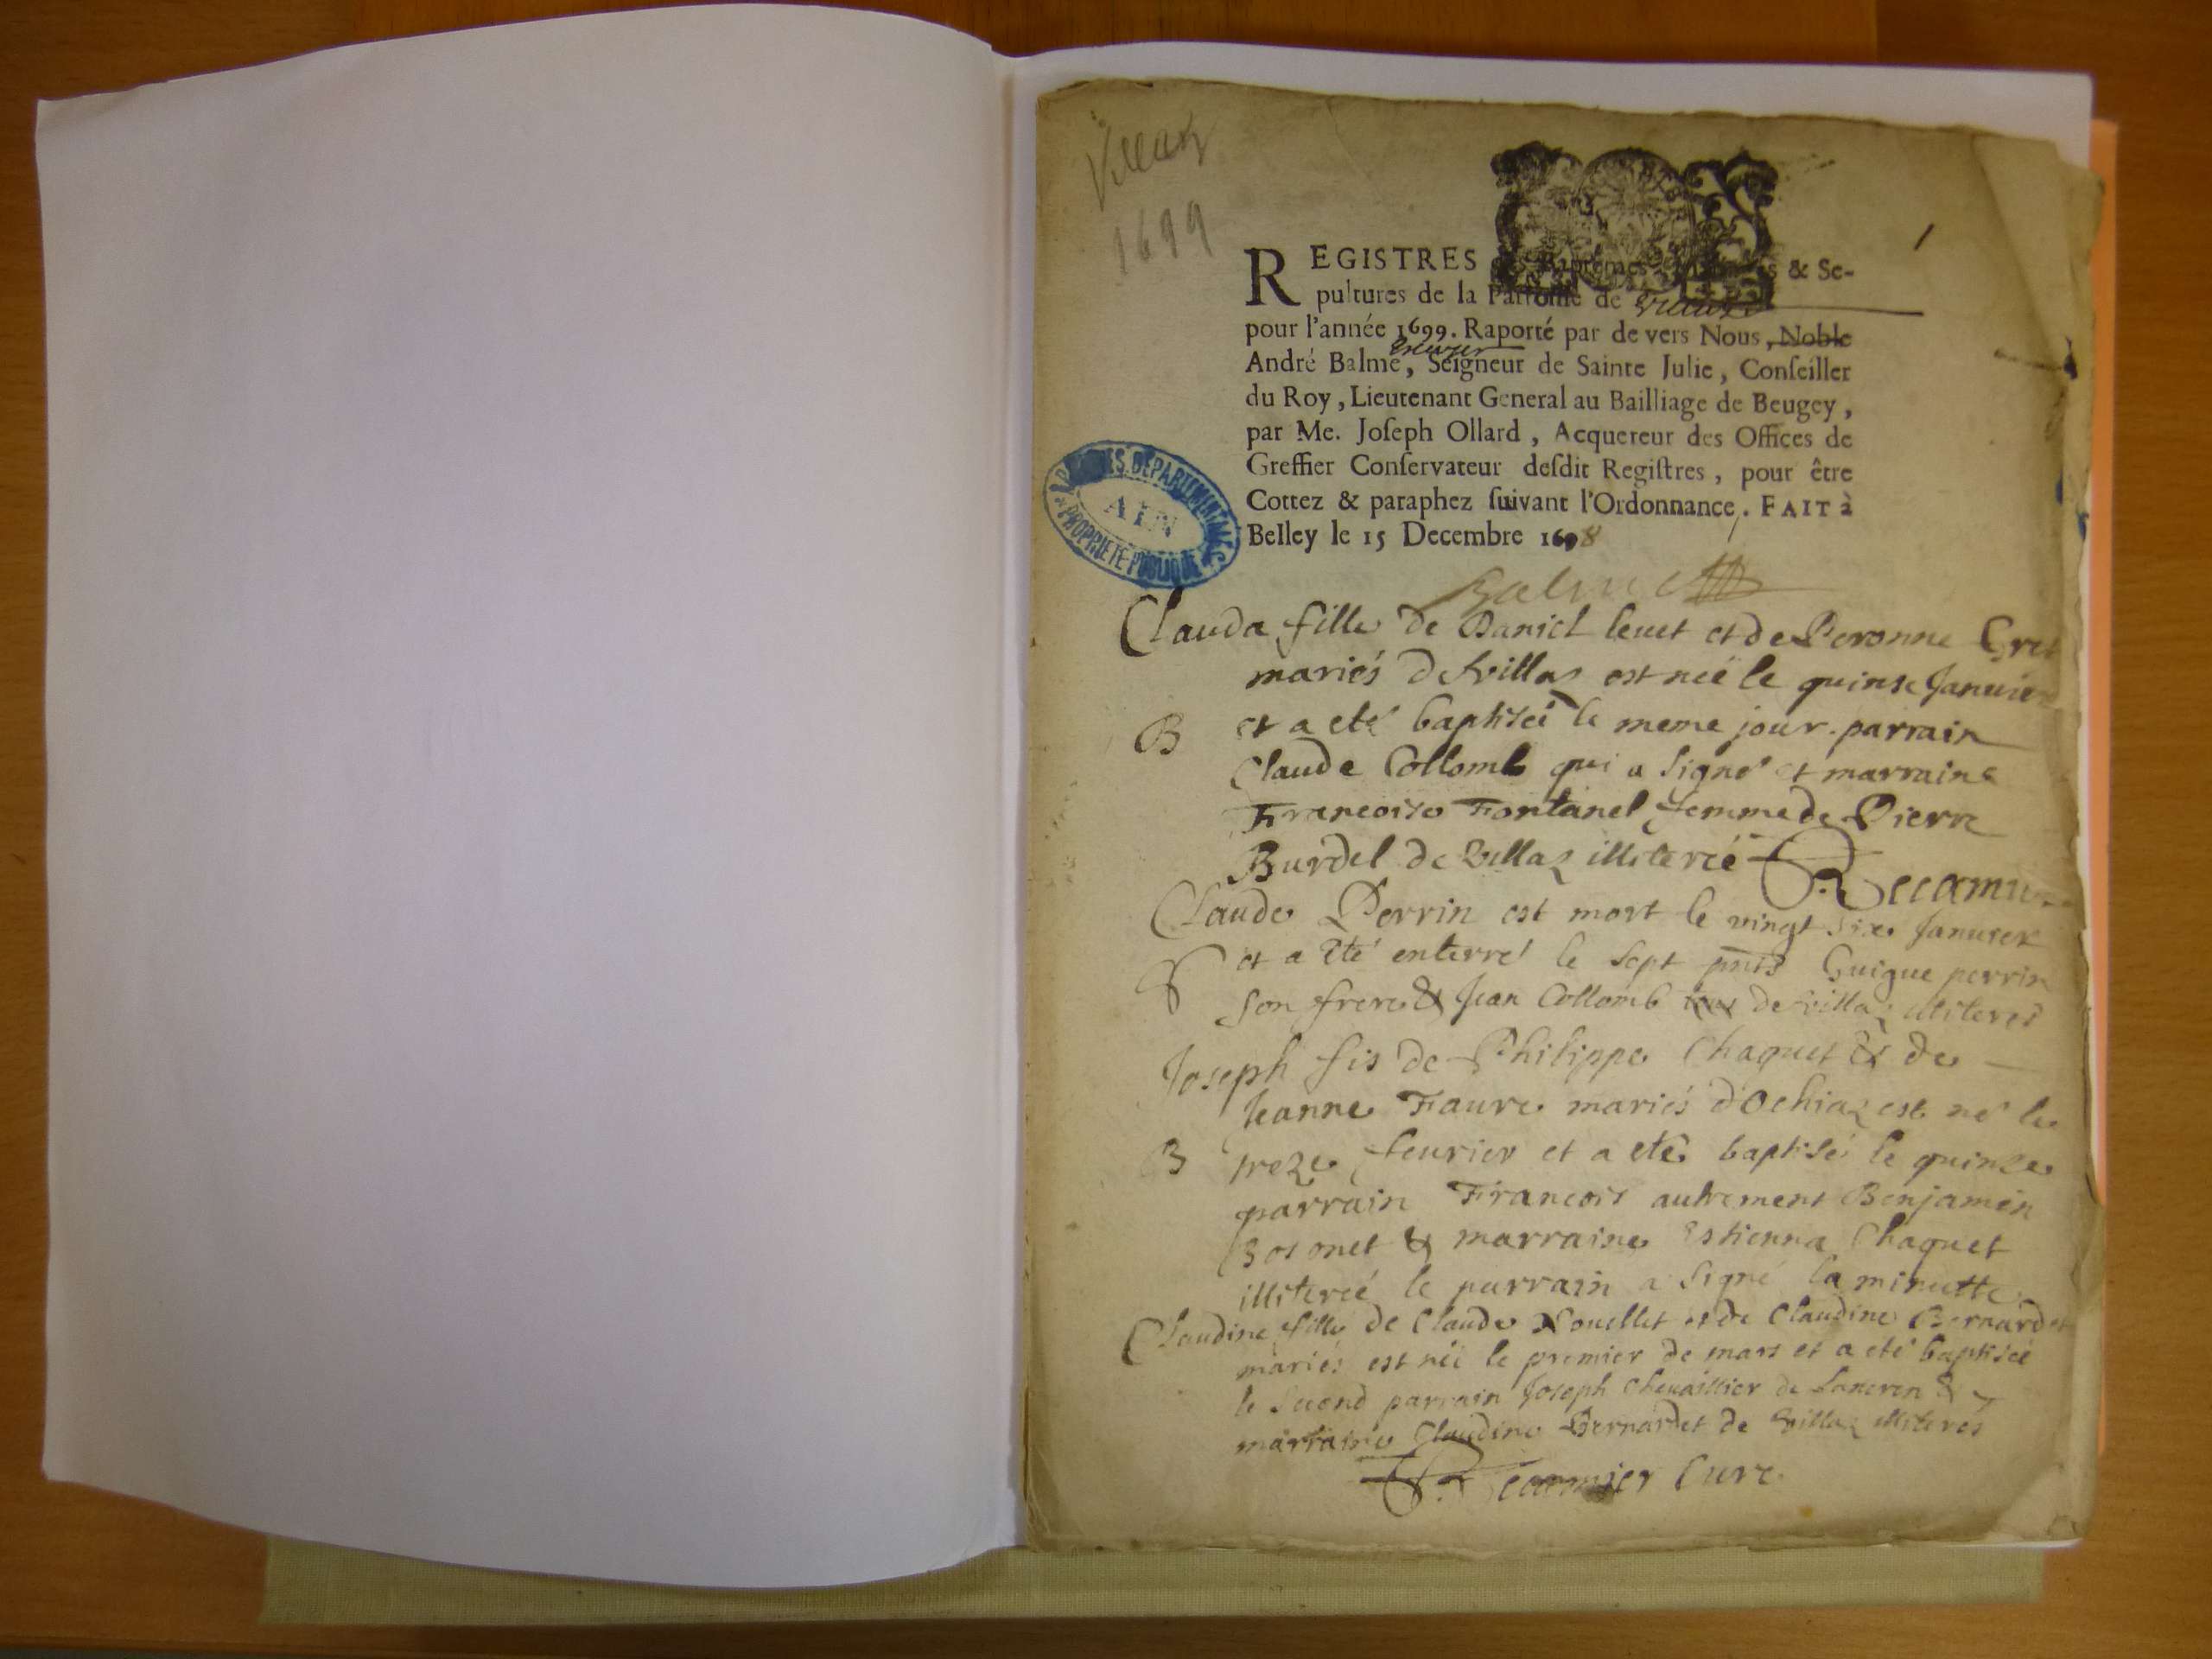 1699
1
REGISTRES des Baptêmes, & Se-
pultures de la Parroisse de
pour l'année 1699. Raporté par de vers Nous, Noble
Escuyer
André Balme, Seigneur de Sainte Julie, Conseiller
du Roy, Lieutenant General au Bailliage de Beugey,
par Me. Joseph Ollard, Acquereur des Offices de
Greffier Conservateur desdit Registres, pour être
Cottez & paraphez suivant l'Ordonnance. FAIT à
Belley le 15 Decembre 1698
ARCHIVES DEPARTEMENTALES
AIN
PROPRIETE PUBLIQUE
Balme
Clauda fille de Daniel leuet et de Peronne Gret
mariés de villas est neë le quinse Januier
B et a eté baptiseé le meme jour. parrain
Claude Collomb qui a signé et marraine
Francoise Fontanel femme de Pierre
Burdel de Villaz illitereé Recamier
Claude Perrin est mort le vingt six Januier
S et a eté enterré le sept pnts Guigue perrin
son frere & Jean Collomb de villaz illiteres
Joseph fis de Philippe Chaquet & de
Jeanne Faure mariés d'Ochiaz est né le
B treze feurier et a eté baptisé le quinze
parrain Francois autrement Benjamin
Bosonet & marraine Estienna Chaquet
illitereé le parrain a signé la minutte
Claudine fille de Claude Nouellet et de Claudine Bernardet
mariés est neë le premier de mars et a eté baptiseé
le second parrain Joseph Cheuaillier de Lancren &
marraine Claudine Bernardet de villaz illiterés
Recamier Curé